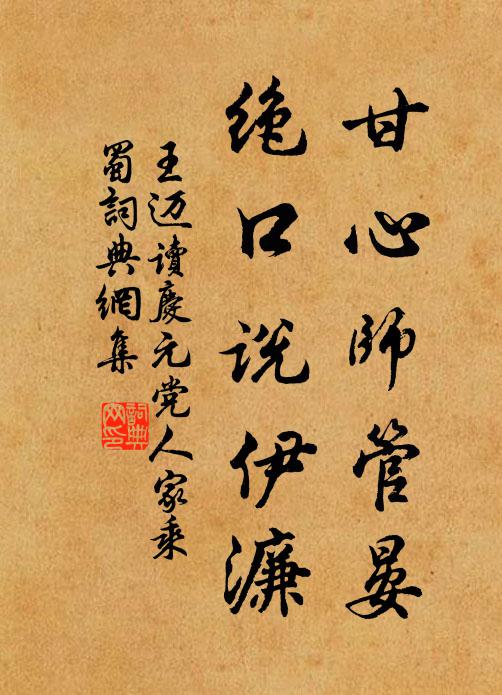 甘心师管晏
绝口说伊濂
王迈读庆元党人家乘
蜀词典网集
词典
网印